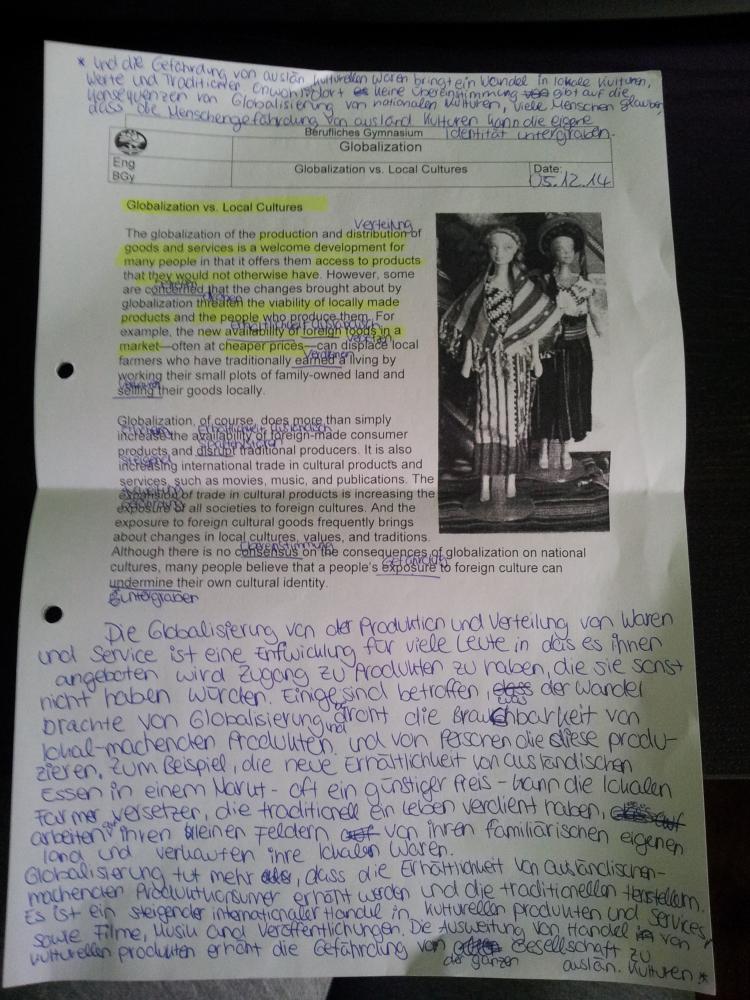 * und die Gefährdung von auslän. kulturellen Waren bringt ein Wandel in lokale Kulturen,
Werte und Traditionen. Es keine Übereinstimmung gibt auf die
Konsequenzen von Globalisierung von nationalen Kulturen, viele Menschen glauben,
dass die Menschengefährdung von ausländ Kulturen kann die eigene
Identität untergraben.
Berufliches Gymnasium
Globalization
Eng
BGy
Globalization vs. Local Cultures
Date:
05.12.14
Globalization vs. Local Cultures
Verteilung
The globalization of the production and distribution of
goods and services is a welcome development for
many people in that it offers them access to products
that they would not otherwise have. However, some
are concerned that the changes brought about by
globalization threaten the viability of locally made
products and the people who produce them. For
example, the new availability of foreign foods in a
market—often at cheaper prices—can displace local
farmers who have traditionally earned a living by
verdienen
working their small plots of family-owned land and
selling their goods locally.
Globalization, of course, does more than simply
increase the availability of foreign-made consumer
products and disrupt traditional producers. It is also
steigend
increasing international trade in cultural products and
services, such as movies, music, and publications. The
expansion of trade in cultural products is increasing the
exposure of all societies to foreign cultures. And the
exposure to foreign cultural goods frequently brings
about changes in local cultures, values, and traditions.
Übereinstimmung
Although there is no consensus on the consequences of globalization on national
Gefährdung
cultures, many people believe that a people's exposure to foreign culture can
undermine their own cultural identity.
untergraben
Die Globalisierung von der Produktion und Verteilung von Waren
und Service ist eine Entwicklung für viele Leute in das es ihnen
angeboten wird Zugang zu Produkten zu haben, die sie sonst
nicht haben würden. Einige sind betroffen, was der Wandel
brachte von Globalisierung und droht die Brauchbarkeit von
lokal-machenden Produkten und von Personen die diese produ-
zieren. Zum Beispiel, die neue Erhältlichkeit von ausländischen
Essen in einem Markt - oft ein günstiger Preis - kann die lokalen
Farmer versetzen, die traditionell ein Leben verdient haben,
arbeiten auf ihren kleinen Feldern von ihren familiärischen eigenen
Land und verkaufen ihre lokalen Waren.
Globalisierung tut mehr, dass die Erhältlichkeit von ausländischen-
machenden Produktkonsumer erhöht werden und die traditionellen Herstellern.
Es ist ein steigender internationaler Handel in kulturellen produkten und Services,
sowie Filme, Musik und Veröffentlichungen. Die Ausweitung von Handel von
kulturellen produkten erhöht die Gefährdung von der ganzen Gesellschaft zu
auslän. Kulturen *